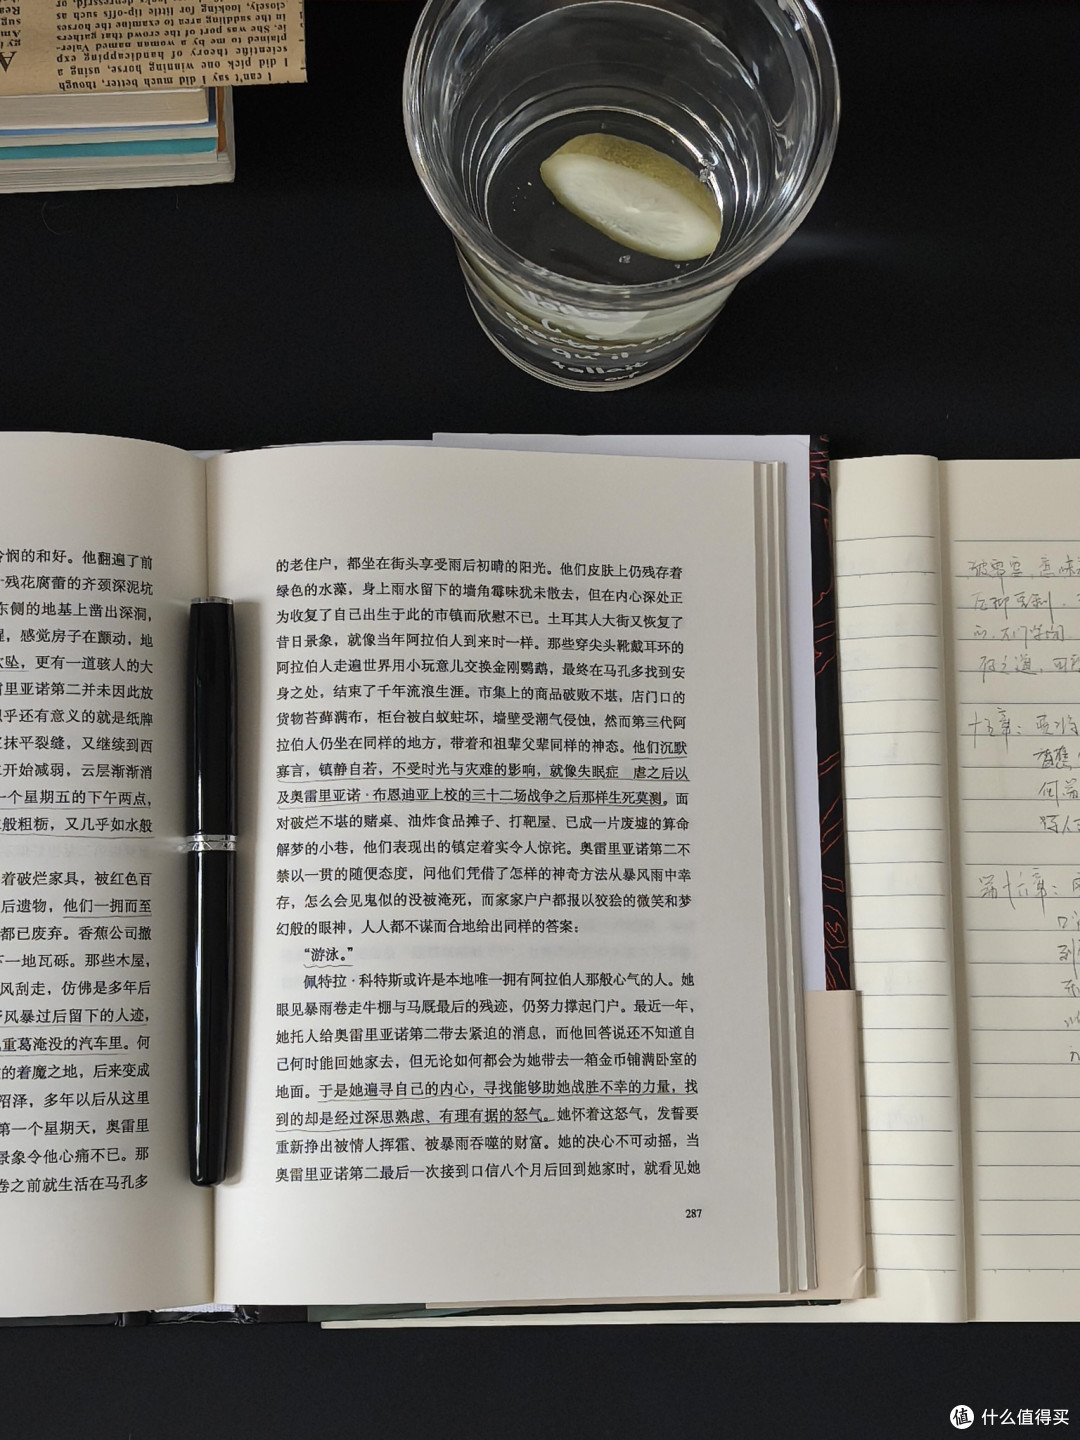 I can't say I did much better, though
I did pick one winning horse, using a
scientific theory of handicapping exp
plained to me by a woman named Valer-
ie. She was part of the crowd that gathers
in the saddling area to examine the horses
closely, looking for little tip-offs such as
令悯的和好。他翻遍了前
残花腐蕾的齐颈深泥坑
东侧的地基上凿出深洞,
醒，感觉房子在颤动，地
坠，更有一道骇人的大
雷里亚诺第二并未因此放
似乎还有意义的就是纸牌
抹平裂缝，又继续到西
开始减弱，云层渐渐消
一个星期五的下午两点，
般粗粝，又几乎如水般
着破烂家具，被红色百
后遗物，他们一拥而至
都已废弃。香蕉公司撤
下一地瓦砾。那些木屋，
风刮走，仿佛是多年后
风暴过后留下的人迹，
重葛淹没的汽车里。何
的着魔之地，后来变成
沼泽，多年以后从这里
第一个星期天，奥雷里
景象令他心痛不已。那
卷之前就生活在马孔多
的老住户，都坐在街头享受雨后初晴的阳光。他们皮肤上仍残存着
绿色的水藻，身上雨水留下的墙角霉味犹未散去，但在内心深处正
为收复了自己出生于此的市镇而欣慰不已。土耳其人大街又恢复了
昔日景象，就像当年阿拉伯人到来时一样。那些穿尖头靴戴耳环的
阿拉伯人走遍世界用小玩意儿交换金刚鹦鹉，最终在马孔多找到安
身之处，结束了千年流浪生涯。市集上的商品破败不堪，店门口的
货物苔藓满布，柜台被白蚁蛀坏，墙壁受潮气侵蚀，然而第三代阿
拉伯人仍坐在同样的地方，带着和祖辈父辈同样的神态。他们沉默
寡言，镇静自若，不受时光与灾难的影响，就像失眠症　虐之后以
及奥雷里亚诺·布恩迪亚上校的三十二场战争之后那样生死莫测。面
对破烂不堪的赌桌、油炸食品摊子、打靶屋、已成一片废墟的算命
解梦的小巷，他们表现出的镇定着实令人惊诧。奥雷里亚诺第二不
禁以一贯的随便态度，问他们凭借了怎样的神奇方法从暴风雨中幸
存，怎么会见鬼似的没被淹死，而家家户户都报以狡狯的微笑和梦
幻般的眼神，人人都不谋而合地给出同样的答案：
“游泳。”
佩特拉·科特斯或许是本地唯一拥有阿拉伯人那般心气的人。她
眼见暴雨卷走牛棚与马厩最后的残迹，仍努力撑起门户。最近一年，
她托人给奥雷里亚诺第二带去紧迫的消息，而他回答说还不知道自
己何时能回她家去，但无论如何都会为她带去一箱金币铺满卧室的
地面。于是她遍寻自己的内心，寻找能够助她战胜不幸的力量，找
到的却是经过深思熟虑、有理有据的怒气。她怀着这怒气，发誓要
重新挣出被情人挥霍、被暴雨吞噬的财富。她的决心不可动摇，当
奥雷里亚诺第二最后一次接到口信八个月后回到她家时，就看见她
287
十五章：
第十六章：
值 什么值得买